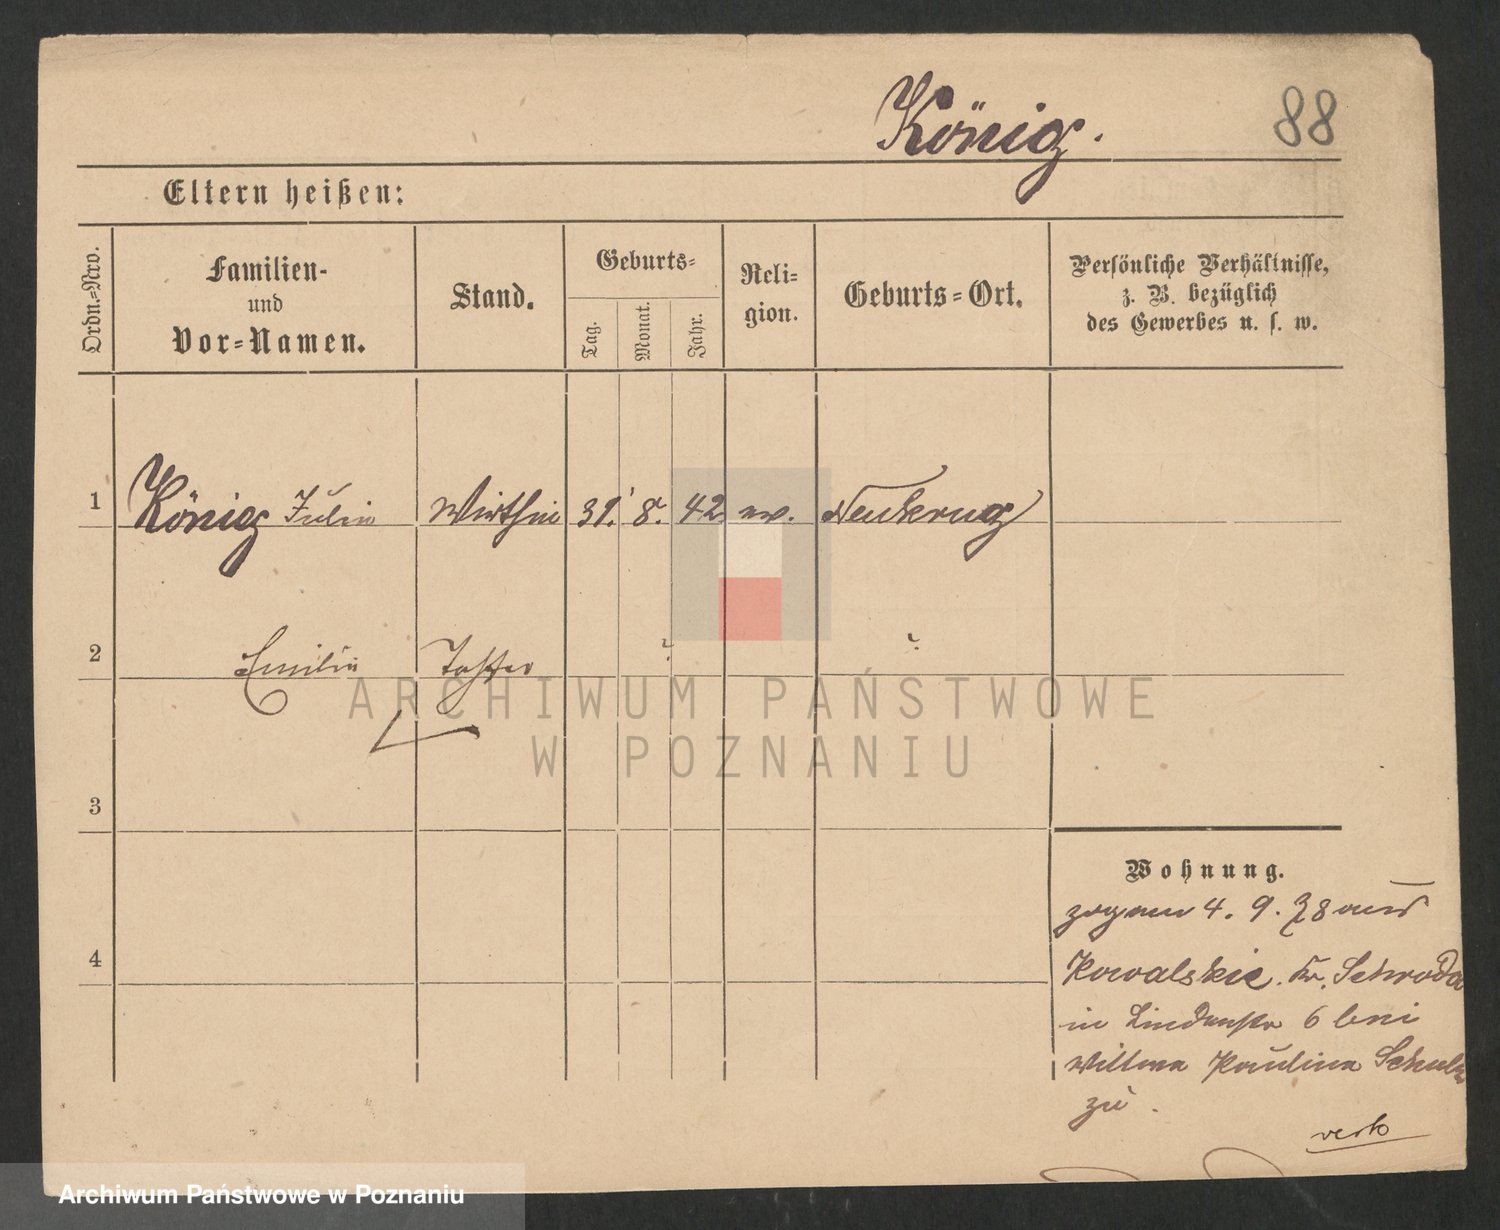 König.
88
Eltern heißen:
Ordn.=Nro.
Familien-
und
Vor=Namen.
Stand.
Geburts=
Tag.
Monat.
Jahr.
Reli=
gion.
Geburts=Ort.
Persönliche Verhältnisse,
z. B. bezüglich
des Gewerbes u. s. w.
1 König Julie Wirthin 31. 8. 42 ev. Neukrug
2 Emilie Tochter ? ?
3
4
Wohnung.
zog am 4. 9. 78 aus
Kowalskie. Kr. Schroda
in Lindenstr 6 bei
Wittwe Paulina Schulz
zu.
verk
ARCHIWUM PAŃSTWOWE
W POZNANIU
Archiwum Państwowe w Poznaniu